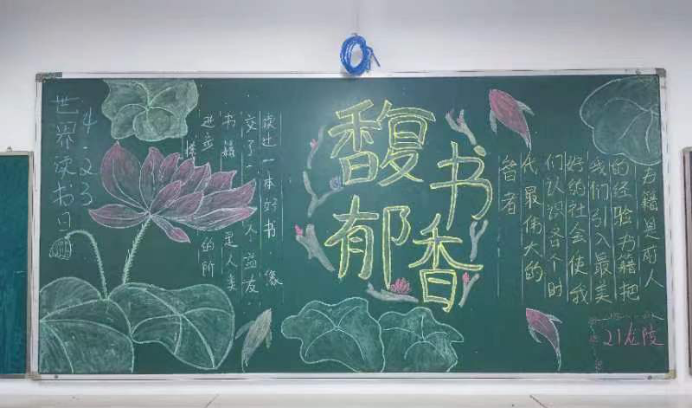 世界读书日
4.23
读过一本好书,像
交了一个益友
书籍是人类
进步的阶
梯
馥郁
书香
书籍是前人
的经验书籍把
我们引入最美
好的社会使我
们认识各个时
代最伟大的
智者
21龙陵